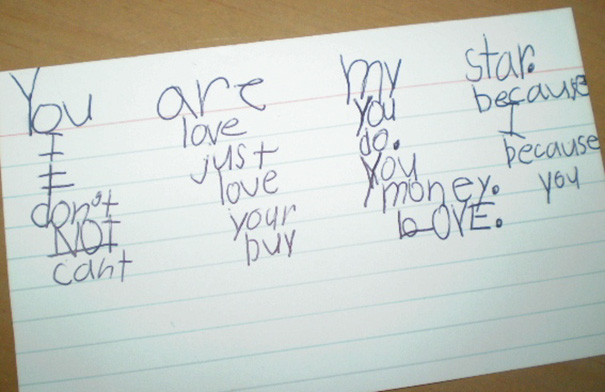 You are my star.
I love you because
I just do. I
don't love you because
NOT your money. you
cant buy LOVE.